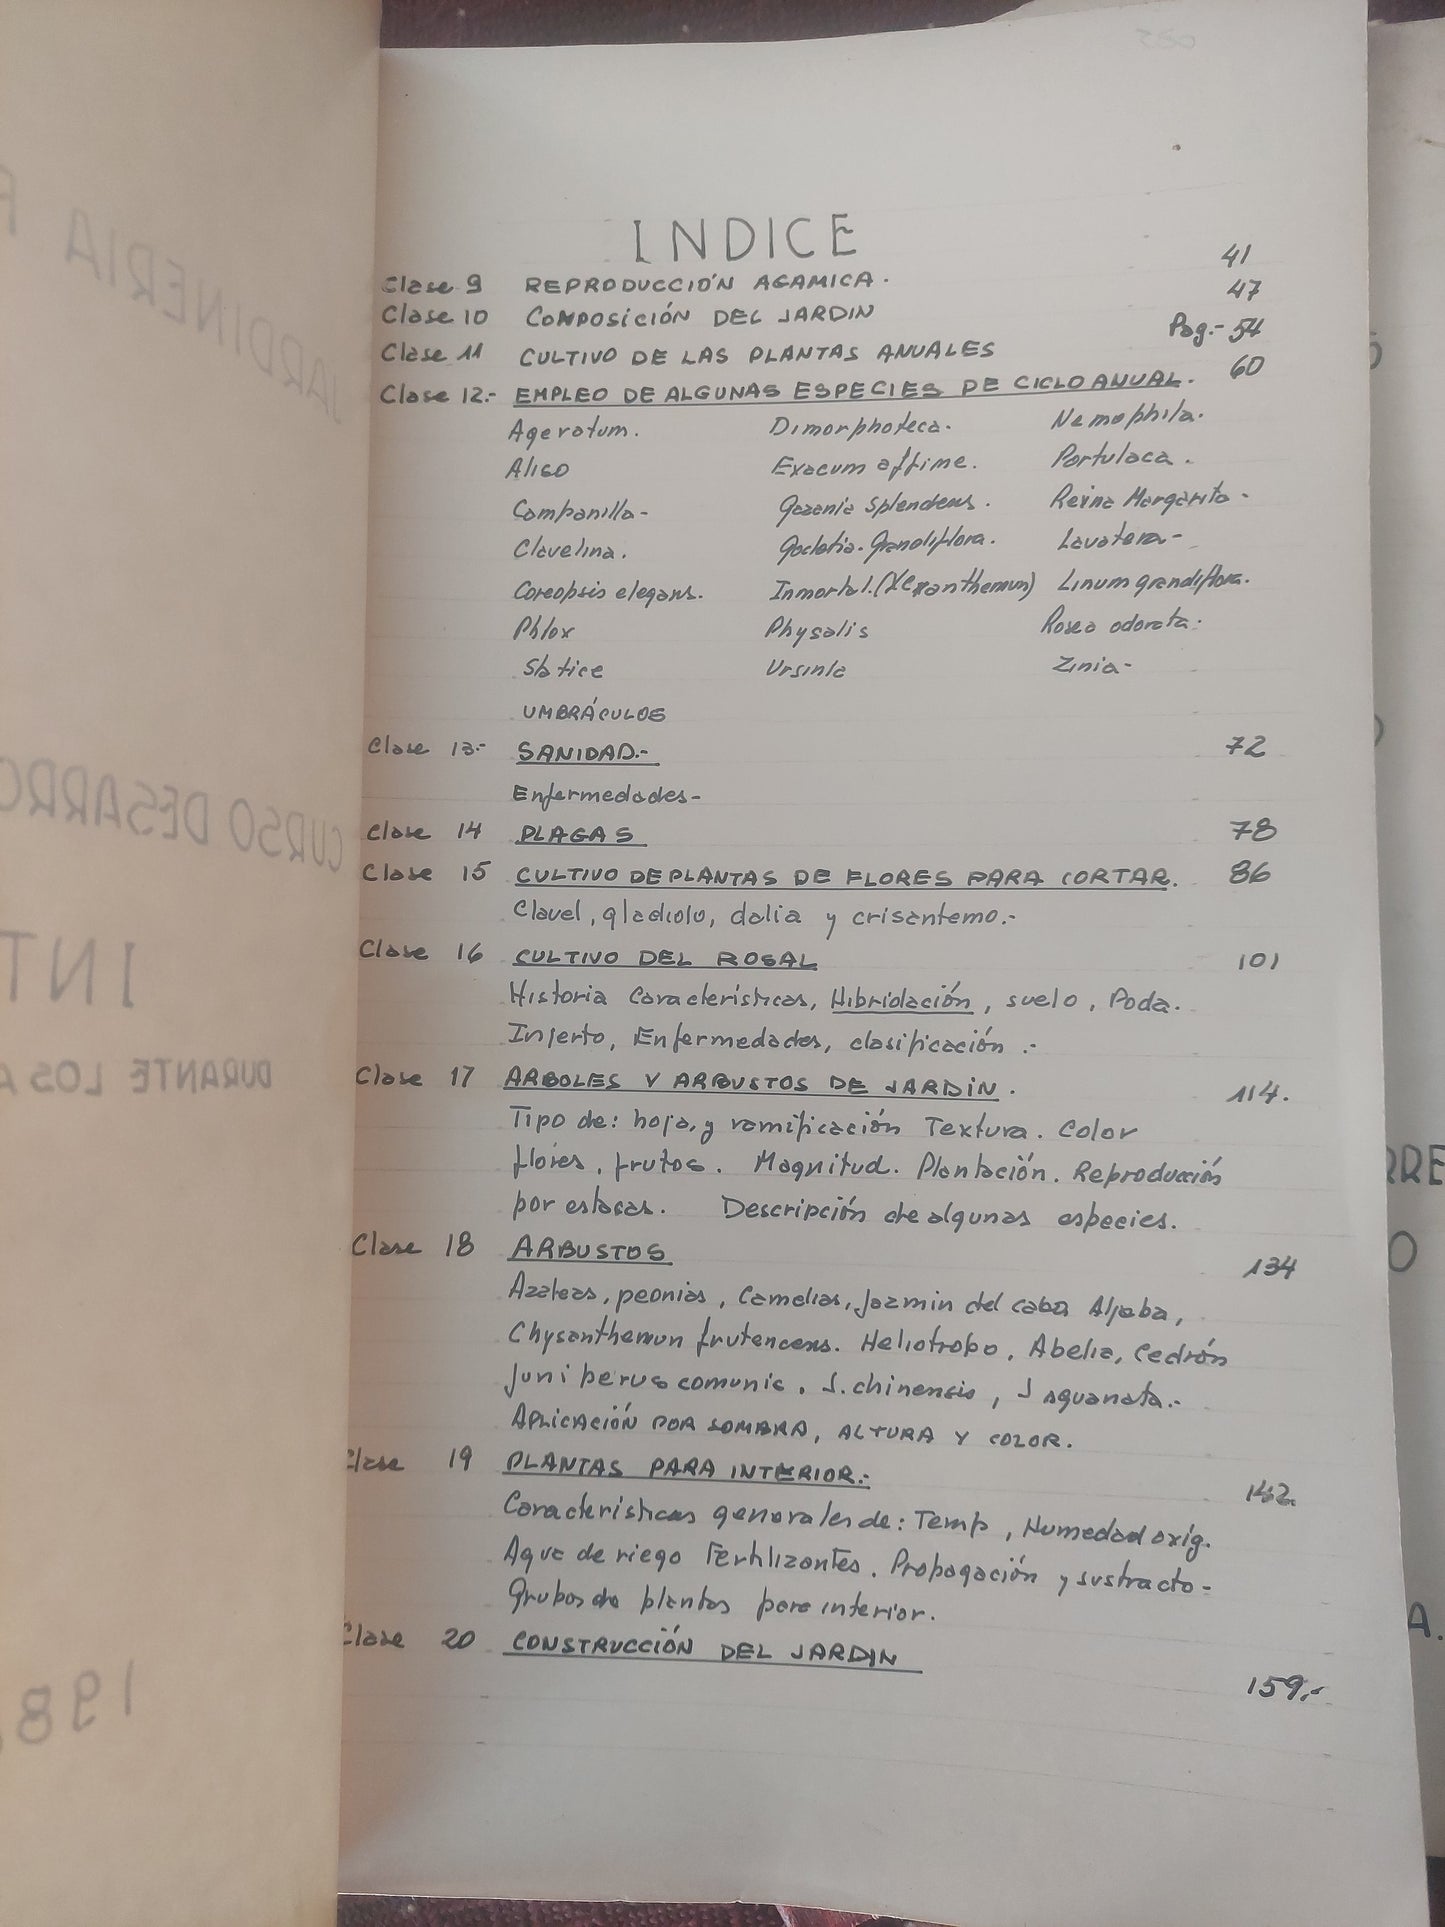 INDICE
Clase 9 REPRODUCCIÓN AGAMICA. 41
Clase 10 COMPOSICIÓN DEL JARDIN 47
Clase 11 CULTIVO DE LAS PLANTAS ANUALES Pag.- 54
Clase 12.- EMPLEO DE ALGUNAS ESPECIES DE CICLO ANUAL. 60
Ageratum. Dimorphoteca. Nemophila.
Aliso Exacum affime. Portulaca.
Campanilla- Gazania Splendens. Reina Margarita-
Clavelina. Godetia. Grandiflora. Lavatera-
Coreopsis elegans. Inmortal. (Xeranthemun) Linum grandiflora.
Phlox Physalis Rosea odorata.
Statice Ursinia Zinia-
UMBRÁCULOS
Clase 13.- SANIDAD.- 72
Enfermedades-
Clase 14 PLAGAS 78
Clase 15 CULTIVO DE PLANTAS DE FLORES PARA CORTAR. 86
Clavel, gladiolo, dalia y crisantemo.-
Clase 16 CULTIVO DEL ROSAL 101
Historia Características, Hibridación, suelo, Poda.
Injerto, Enfermedades, clasificación.-
Clase 17 ARBOLES Y ARBUSTOS DE JARDIN. 114.
Tipo de: hoja, y ramificación Textura. Color
flores, frutos. Magnitud. Plantación. Reproducción
por estacas. Descripción de algunas especies.
Clase 18 ARBUSTOS 134
Azaleas, peonias, Camelias, Jazmin del cabo Aljaba,
Chysanthemun frutencens. Heliotropo, Abelia, Cedrón
Juniperus comunis. J. chinensis, J
APLICACIÓN POR SOMBRA, ALTURA Y COLOR.
Clase 19 PLANTAS PARA INTERIOR.- 142.
Características generales de: Temp, Humedad oxíg.
Agua de riego Fertilizantes. Propagación y sustracto-
Grupos de plantas para interior.
Clase 20 CONSTRUCCIÓN DEL JARDIN 159.-
JARDINERIA
CURSO DESARRO
INT
DURANTE LOS A
198